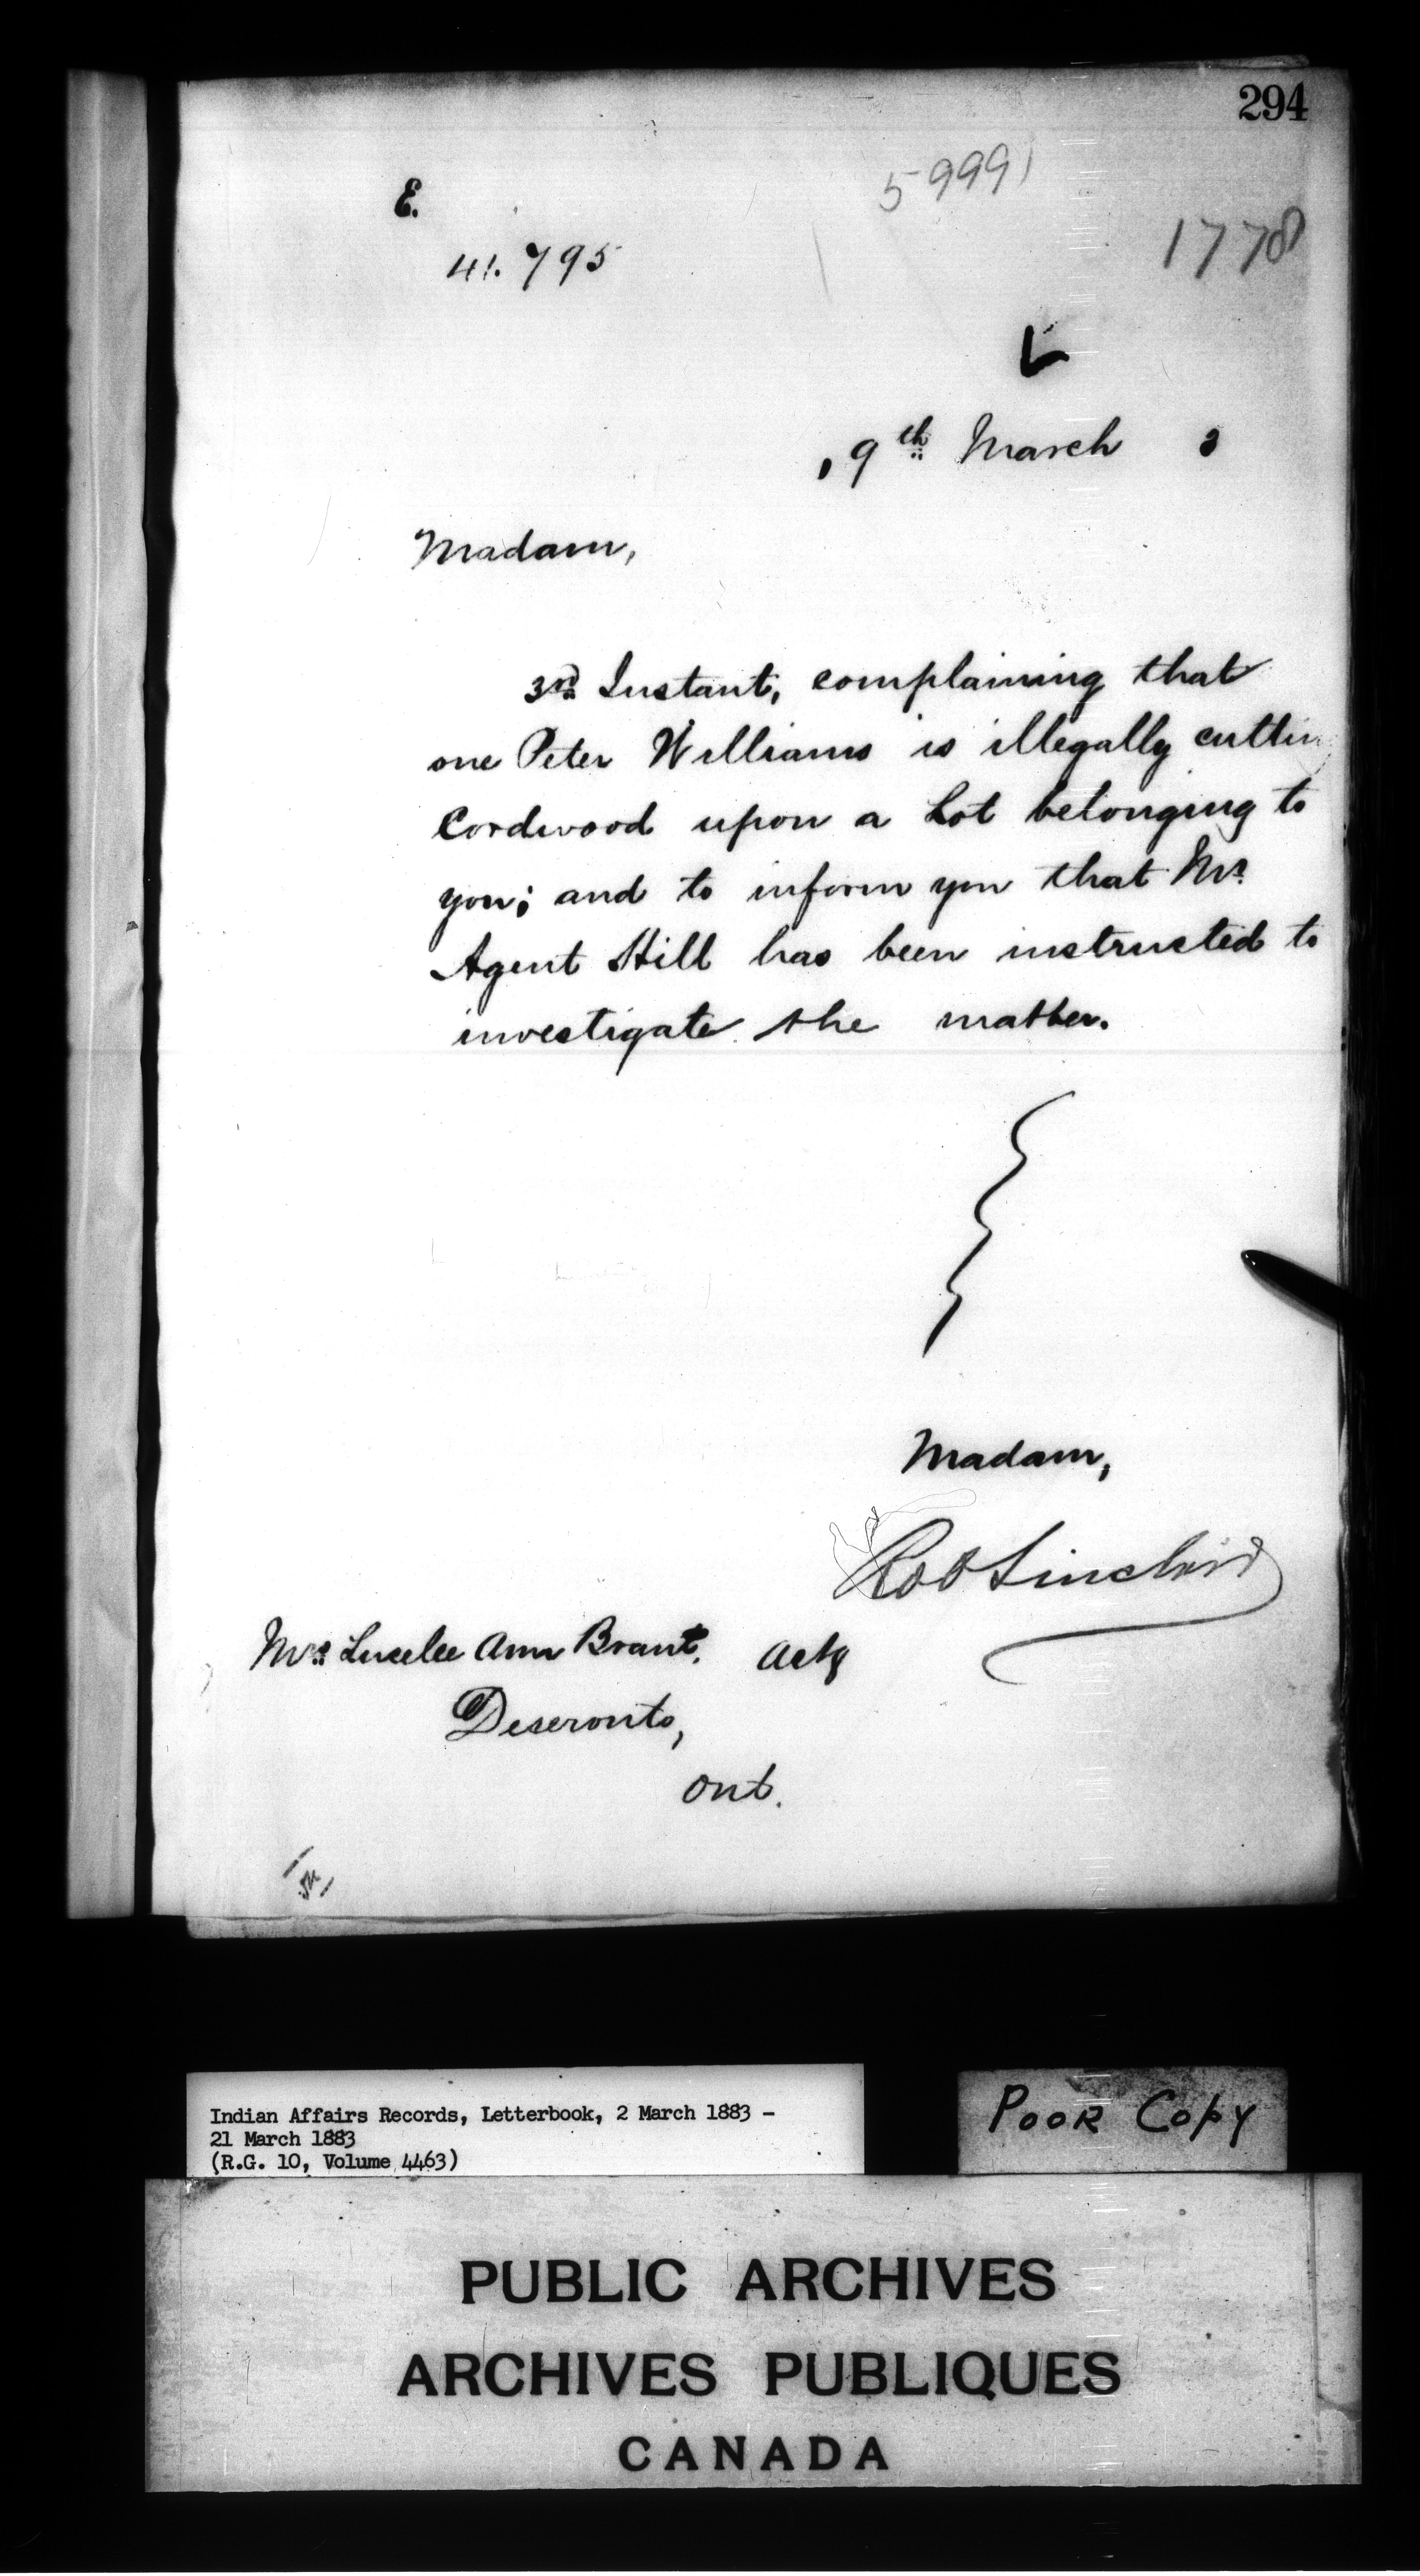 294
59991
1778
E.
41.795
, 9th March 3
Madam,
3rd Instant, complaining that
one Peter Williams is illegally cutting
Cordwood upon a Lot belonging to
you; and to inform you that Mr.
Agent Hill has been instructed to
investigate the matter.
Madam,
Rob Sinclair
Mrs. Ann Brant. Actg
Deseronto,
Ont.
Indian Affairs Records, Letterbook, 2 March 1883 -
21 March 1883
(R.G. 10, Volume 4463)
POOR COPY
PUBLIC ARCHIVES
ARCHIVES PUBLIQUES
CANADA